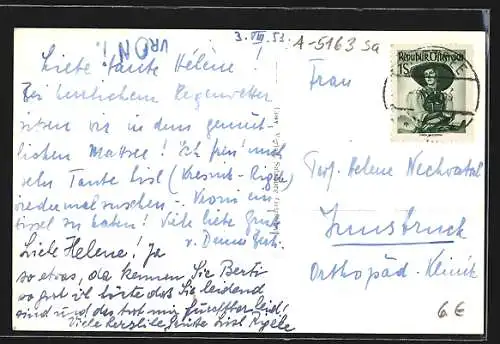 3. VIII. 53
A-5163 Sa
VRONI!
Liebe Tante Hélène!
Bei herrlichem Regenwetter
sitzen wir in dem gemüt-
lichen Mattsee! Ich freu' mich
sehr Tante Lisl
wiedermal zu sehen -
zu haben! Viele liebe Grüße
v. Deiner Berti.
Liebe Helene! Ja
so etwas, da kennen Sie Berti
so gut ich hörte daß Sie leidend
sind und das tut mir furchtbar leid!
Viele herzliche Grüße Lisl
Frau
Helene
Innsbruck
Orthopäd. Klinik
REPUBLIK ÖSTERREICH
1S
6 €